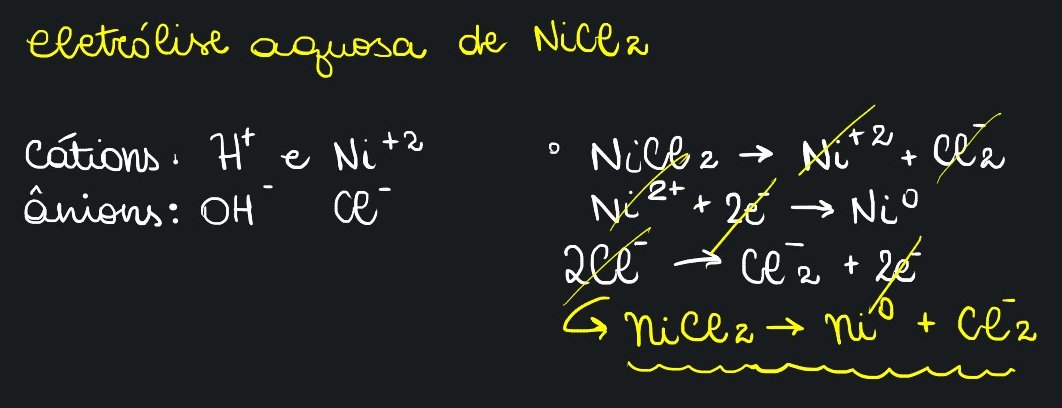 eletrólise aquosa de NiCl₂
Cátions: H⁺ e Ni⁺²
ânions: OH⁻ Cl⁻
° NiCl₂ → Ni⁺² + Cl⁻₂
Ni²⁺ + 2e⁻ → Ni⁰
2Cl⁻ → Cl⁻₂ + 2e⁻
↪ NiCl₂ → Ni⁰ + Cl⁻₂